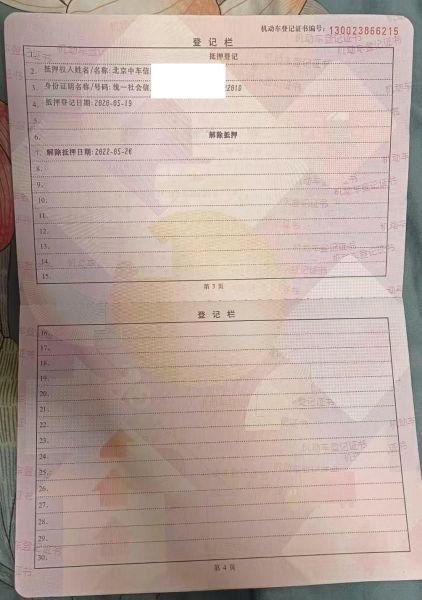 机动车登记证书编号: 130023866215
登记栏
1. 抵押登记
2. 抵押权人姓名/名称:北京中车信
3. 身份证明名称/号码:统一社会信 2010
4. 抵押登记日期:2020-05-19
5.
6. 解除抵押
7. 解除抵押日期:2022-05-26
8.
9.
10.
11.
12.
13.
14.
15.
第 3 页
登记栏
16.
17.
18.
19.
20.
21.
22.
23.
24.
25.
26.
27.
28.
29.
30.
第 4 页